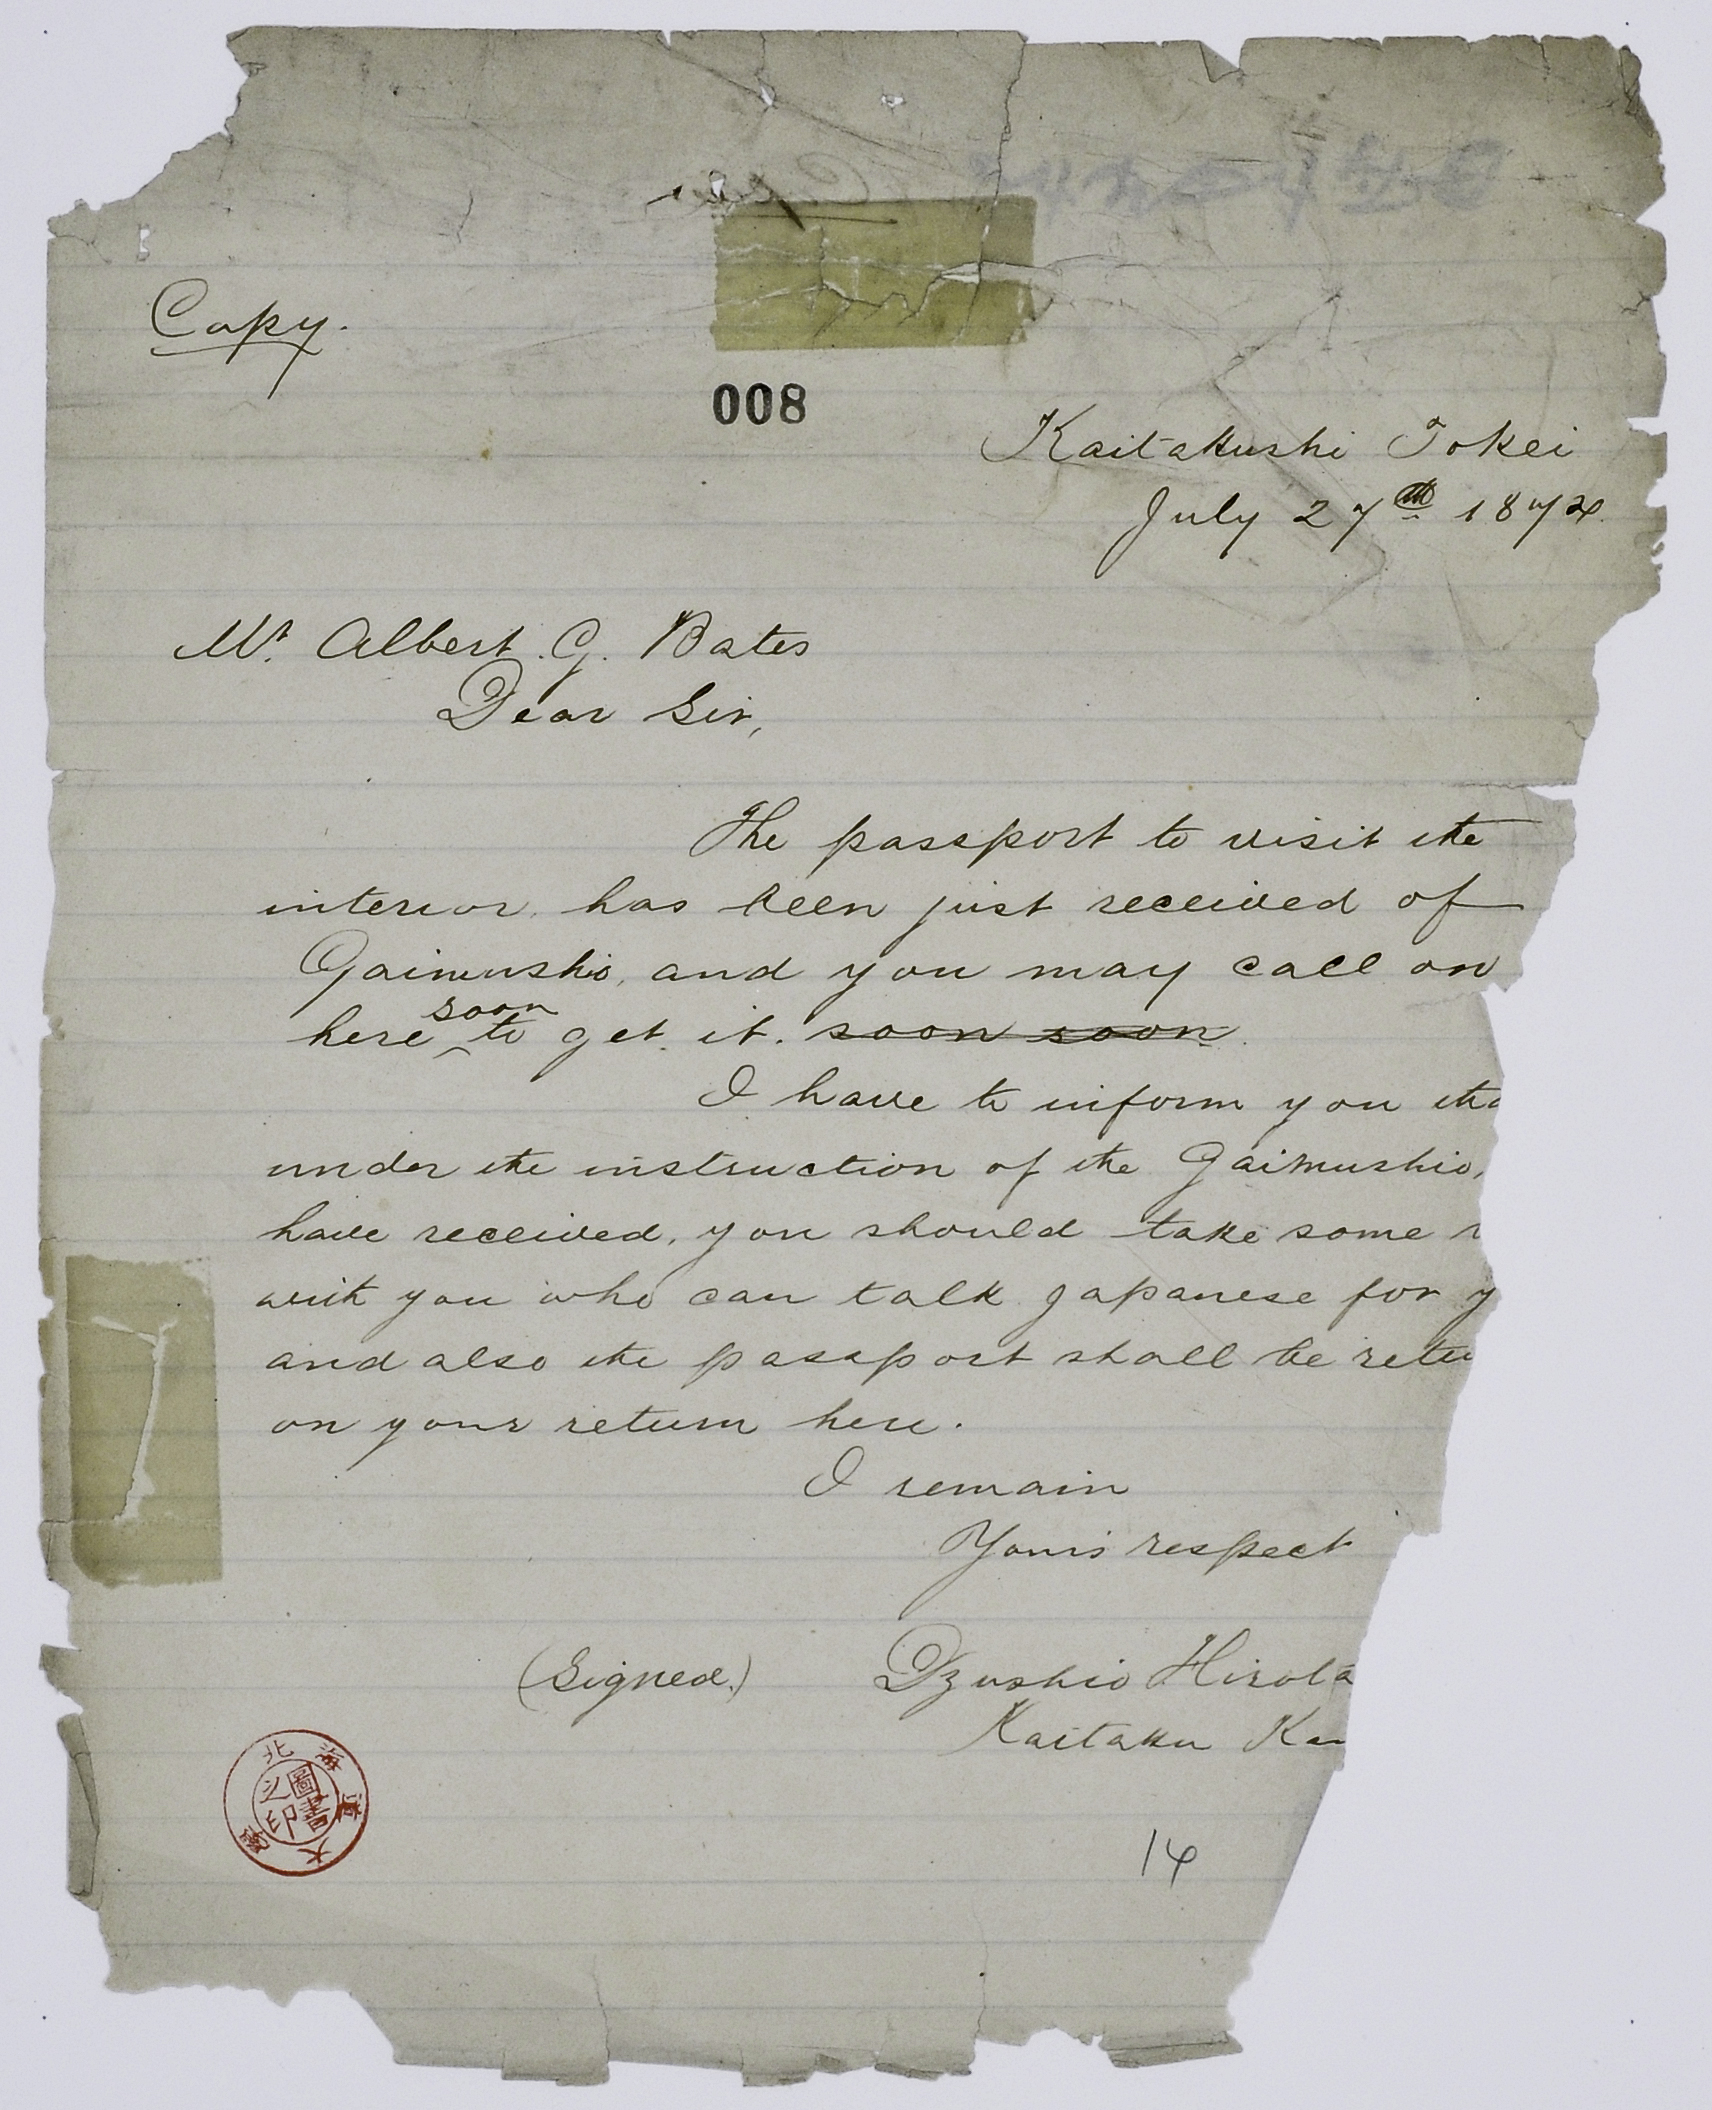 Copy.
008
Kaitakushi Tokei
July 27th 1874
Mr. Albert. G. Bates
Dear Sir,
The passport to visit the
interior, has been just received of
Gaimushio, and you may call on
here soon to get it. soon soon
I have to inform you tha
under the instruction of the Gaimushio,
have received, you should take some
with you who can talk Japanese for y
and also the passport shall be retu
on your return here.
I remain
Yours respect
(Signed.) Dzushio Hirota
Kaitaku Kan
北海道大學
圖書之印
14